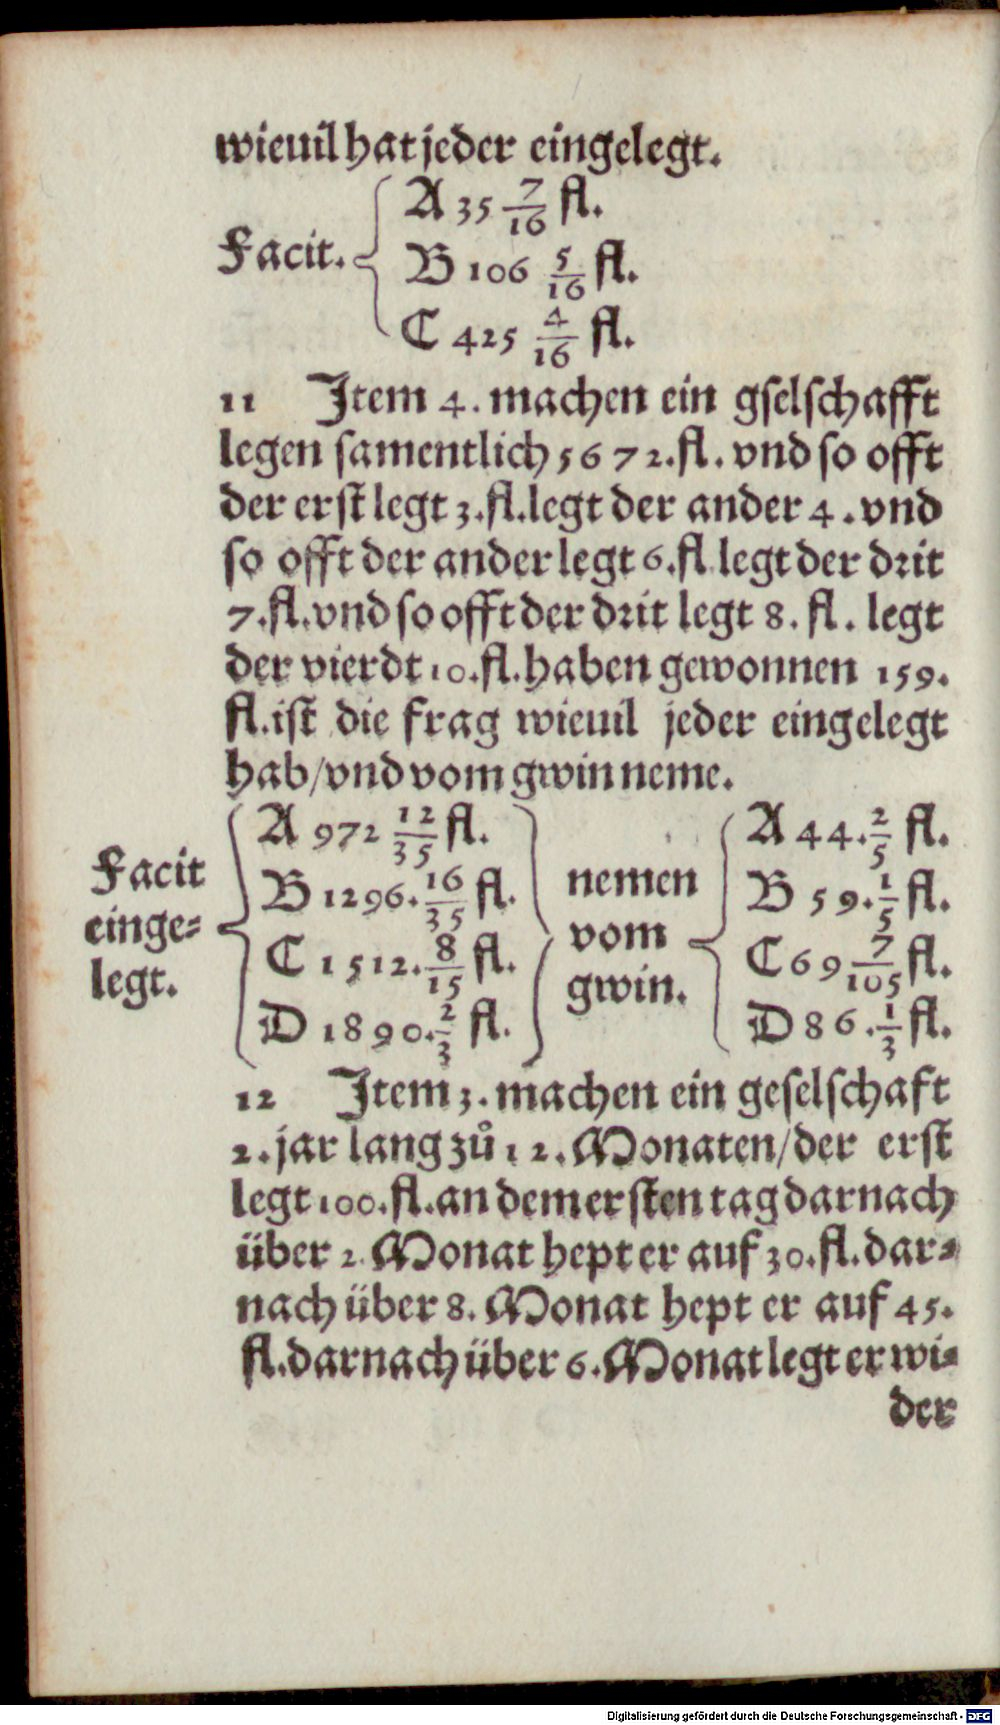 wieuil hat jeder eingelegt.
A 35 7/16 fl.
Facit. B 106 5/16 fl.
C 425 4/16 fl.
11 Item 4. machen ein gselschafft
legen samentlich 5672. fl. vnd so offt
der erst legt 3. fl. legt der ander 4. vnd
so offt der ander legt 6. fl legt der drit
7. fl. vnd so offt der drit legt 8. fl. legt
der vierdt 10. fl. haben gewonnen 159.
fl. ist die frag wieuil jeder eingelegt
hab/vnd vom gwin neme.
Facit
einge⸗
legt.
A 972 12/35 fl.
B 1296. 16/35 fl.
C 1512. 8/15 fl.
D 1890. 2/3 fl.
nemen
vom
gwin.
A 44. 2/5 fl.
B 59. 1/5 fl.
C 69 7/105 fl.
D 86. 1/3 fl.
12 Item 3. machen ein geselschaft
2. jar lang zů 12. Monaten/der erst
legt 100. fl. an dem ersten tag darnach
über 2. Monat hept er auf 30. fl. dar⸗
nach über 8. Monat hept er auf 45.
fl. darnach über 6. Monat legt er wi⸗
der
Digitalisierung gefördert durch die Deutsche Forschungsgemeinschaft - DFG